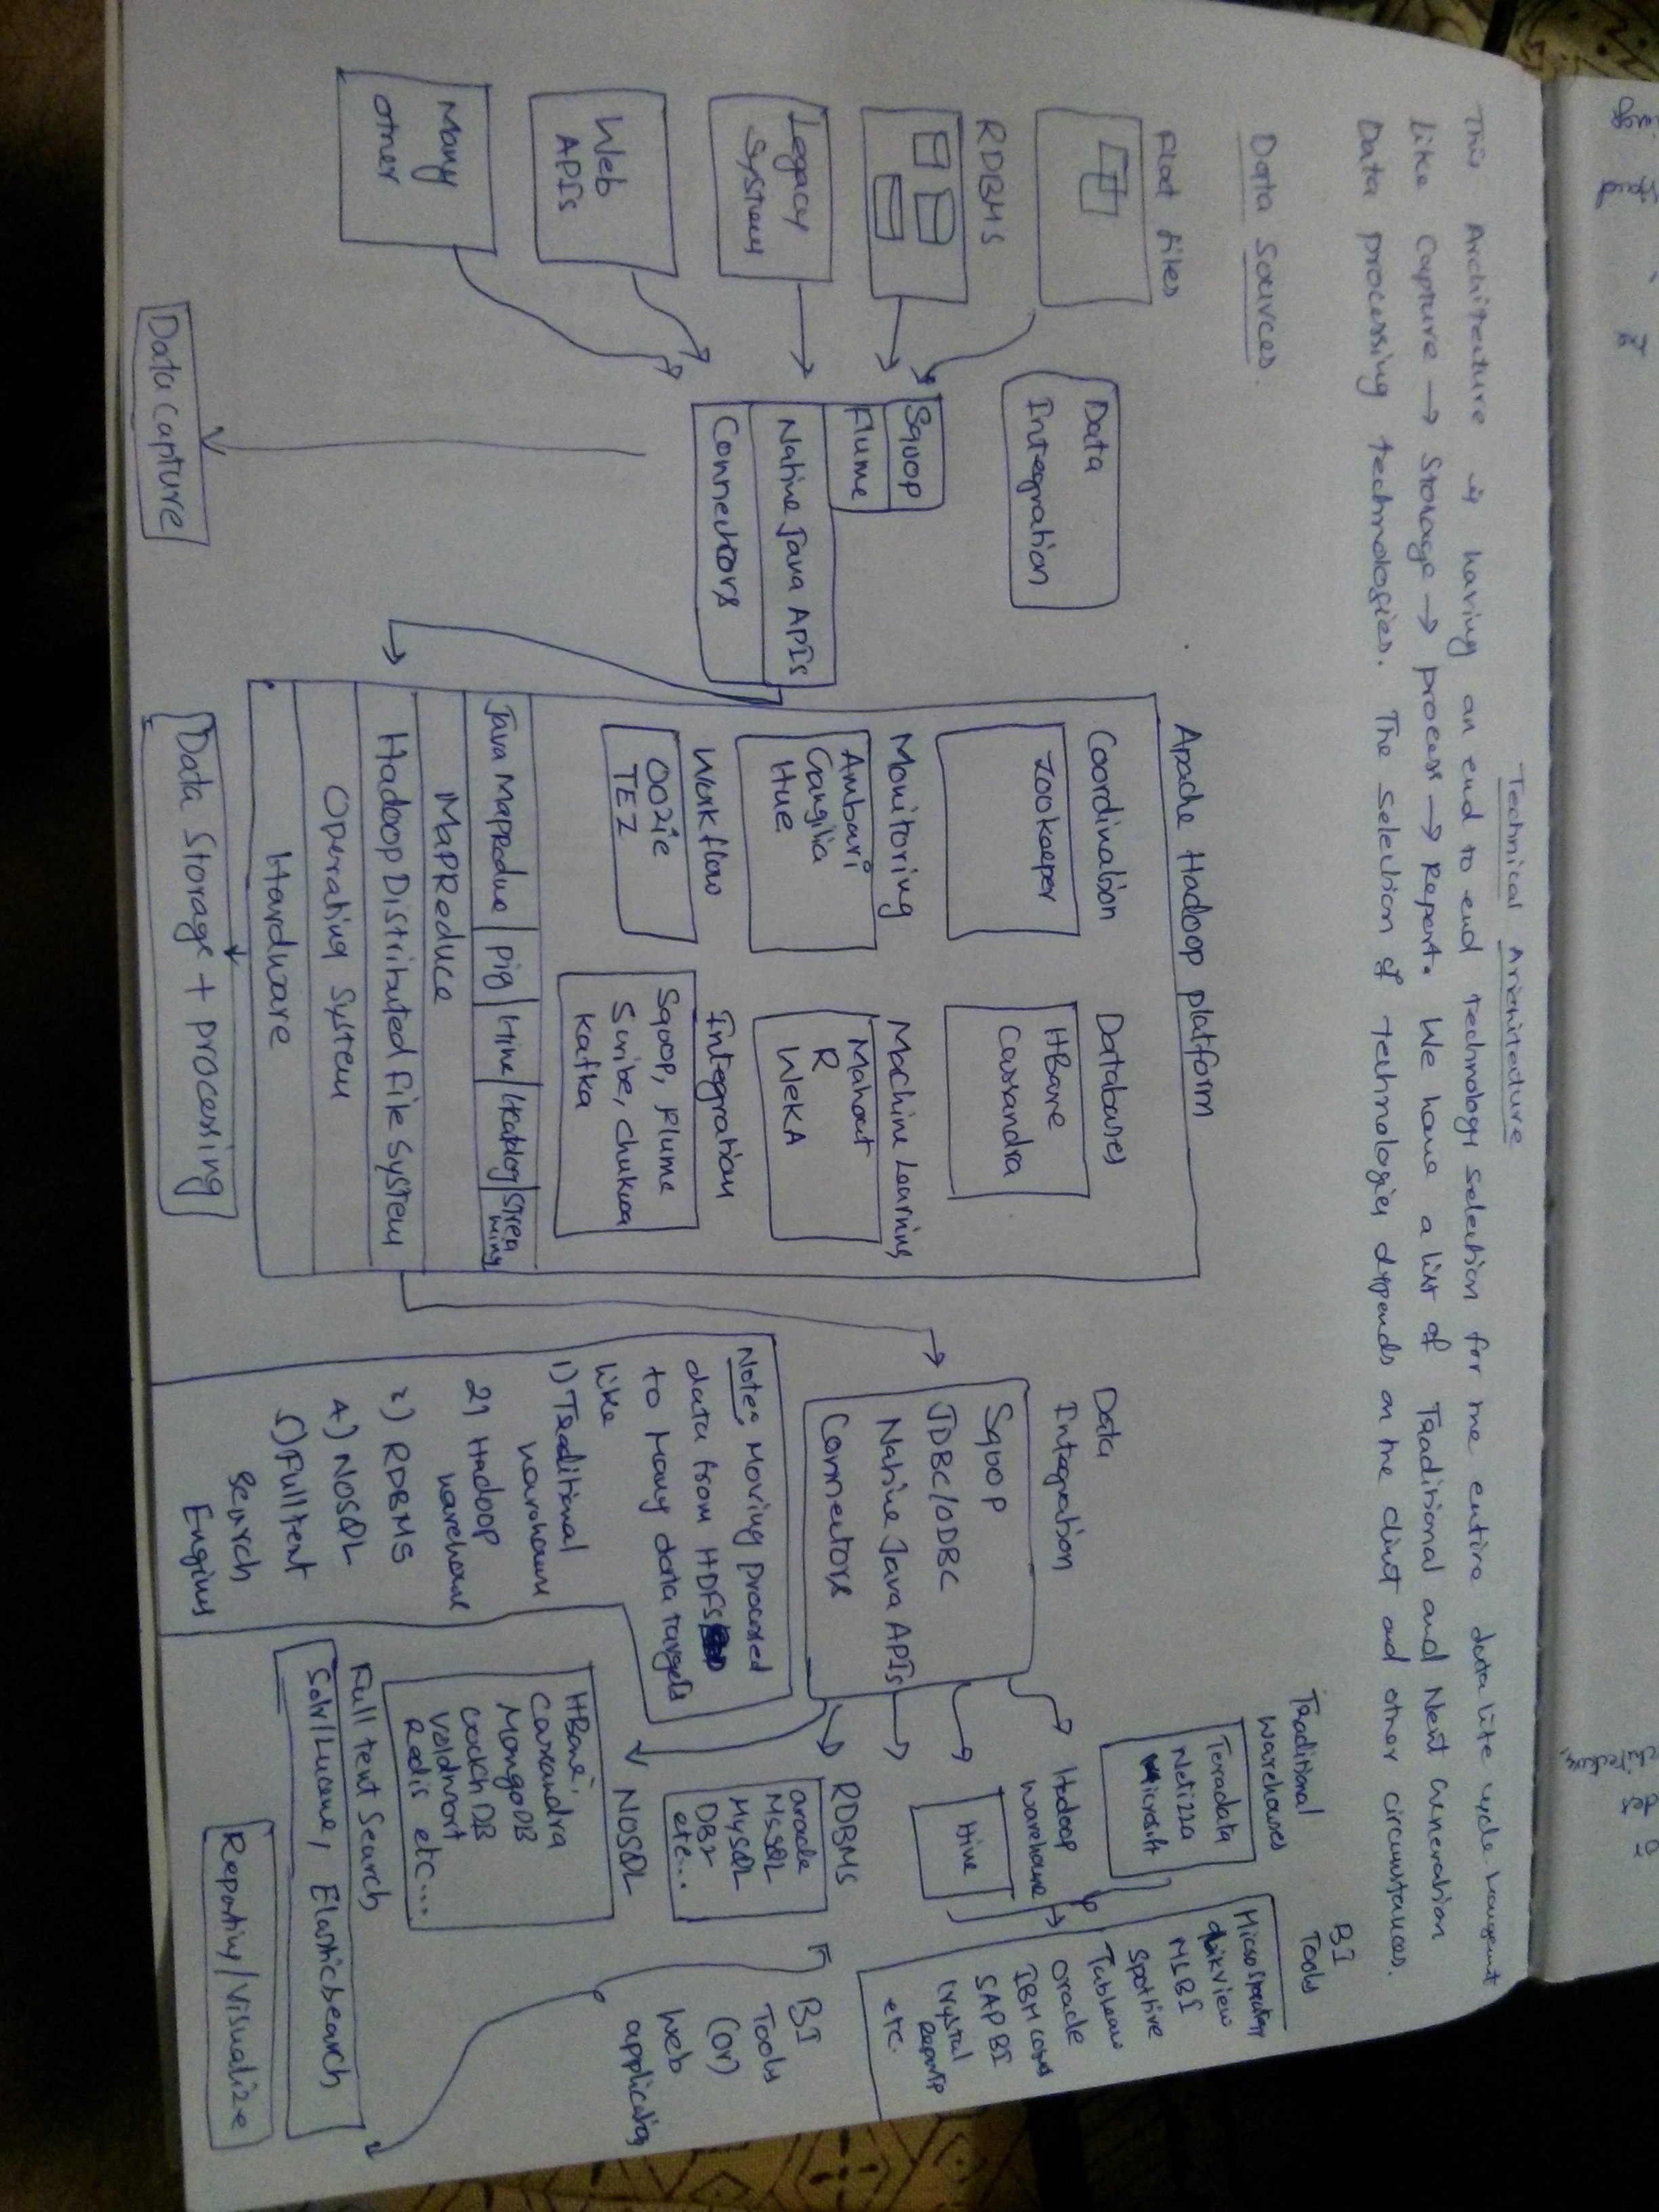 Technical Architecture
This Architecture is having an end to end technology selection for the entire data life cycle
like Capture → Storage → process → Report. We have a list of Traditional and Next Generation
Data processing technologies. The selection of technologies depends on the client and other circumstances.
Data Sources.
Flat files
RDBMS
Legacy
Systems
Web
APIs
Many
other
Data
Integration
Sqoop
Flume
Native Java APIs
Connectors
Data Capture
Apache Hadoop platform
Coordination
Zookeeper
Monitoring
Ambari
Ganglia
Hue
Workflow
OOZie
TEZ
Databases
HBase
Cassandra
Machine Learning
Mahout
R
WEKA
Integration
Sqoop, Flume
Scribe, Chukwa
Kafka
Java MapReduce | Pig | Hive | HCatalog | Strea
ming
MapReduce
Hadoop Distributed File System
Operating System
Hardware
Data Storage + processing
Data
Integration
Sqoop
JDBC/ODBC
Native Java APIs
Connectors
Note: Moving processed
data from HDFS
to Many data targets
like
1) Traditional
warehouse
2) Hadoop
warehouse
3) RDBMS
4) NOSQL
5) Full text
Search
Engines
Traditional
Warehouses
Teradata
Netizza
Microsoft
Hadoop
warehouse
Hive
RDBMS
Oracle
MSSQL
MySQL
DB2
etc...
NOSQL
HBase,
Cassandra
MongoDB
CouchDB
Voldmort
Redis etc...
Full text Search
Solr/Lucene, ElasticSearch
BI
Tools
MicroStrategy
QlikView
MSBI
Spotfire
Tableau
Oracle
IBM Cognos
SAP BI
Crystal
Reports
etc.
BI
Tools
(or)
Web
application
Reporting/Visualize